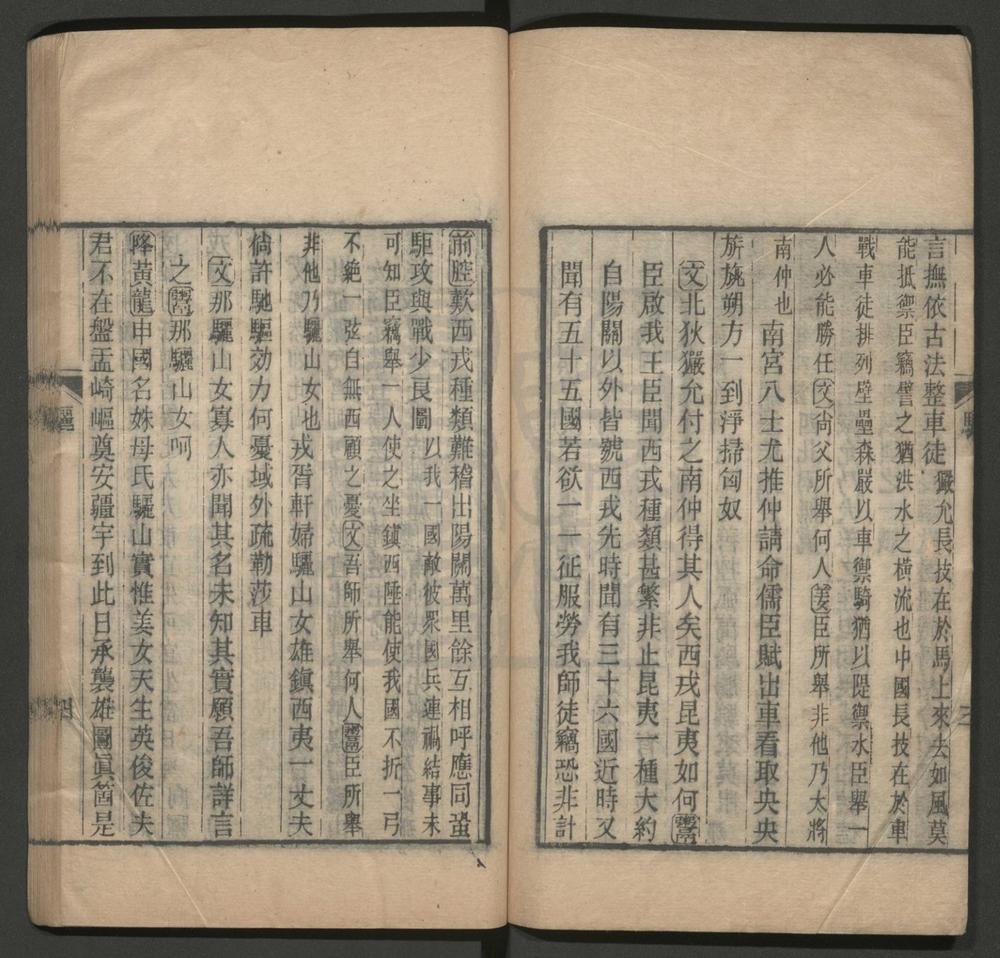 言撫依古法整車徒玁允長技在於馬上來去如風莫
能抵禦臣竊譬之猶洪水之橫流也中國長技在於車
戰車徒排列壁壘森嚴以車禦騎猶以隄禦水臣舉一
人必能勝任文尚父所舉何人姜臣所舉非他乃大將
南仲也南宮八士尤推仲請命儒臣賦出車看取央央
旂旐朔方一到淨掃匈奴
文北狄玁允付之南仲得其人矣西戎昆夷如何鬻
臣啟我王臣聞西戎種類甚繁非止昆夷一種大約
自陽關以外皆號西戎先時聞有三十六國近時又
聞有五十五國若欲一一征服勞我師徒竊恐非計
三
前腔歎西戎種類難稽出陽關萬里餘互相呼應同蛩
駏攻與戰少良圖以我一國敵彼眾國兵連禍結事未
可知臣竊舉一人使之坐鎮西陲能使我國不折一弓
不絕一弦自無西顧之憂文吾師所舉何人鬻臣所舉
非他乃驪山女也戎胥軒婦驪山女雄鎮西夷一丈夫
倘許馳驅効力何憂域外疏勒莎車
文那驪山女寡人亦聞其名未知其實願吾師詳言
之鬻那驪山女呵
降黃龍申國名姝母氏驪山實惟姜女天生英俊佐夫
君不在盤盂崎嶇奠安疆宇到此日承襲雄圖眞箇是
驪
四